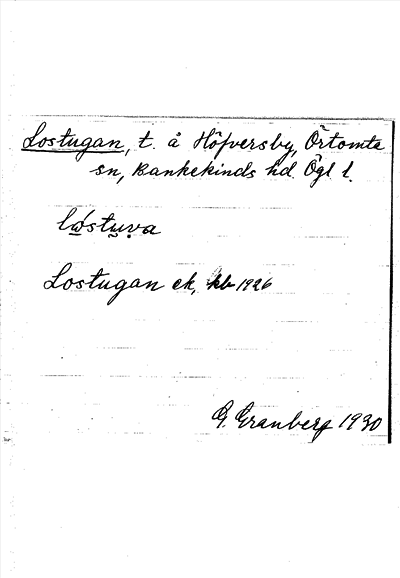 Lostugan, t. å Höfversby, Örtomta
sn, Bankekinds hd Ögl l.
lǿstuva
Lostugan ek, kb 1926
G. Granberg 1930